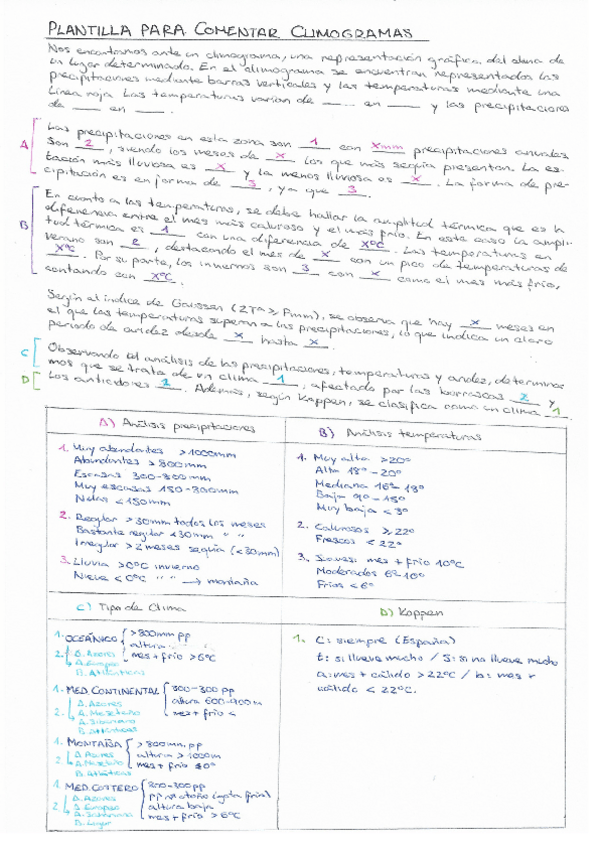 PLANTILLA PARA COMENTAR CLIMOGRAMAS
Nos encontramos ante un climograma, una representación gráfica, del clima de
un lugar determinado. En el climograma se encuentran representadas las
precipitaciones mediante barras verticales y las temperaturas mediante una
línea roja. Las temperaturas varían de ___ en ___ y las precipitaciones
de ___ en ___.
A
Las precipitaciones en esta zona son 1 con xmm precipitaciones anuales.
Son 2, siendo los meses de x los que más sequía presentan. La es-
tación más lluviosa es x y la menos lluviosa es x. La forma de pre-
cipitación es en forma de 3, ya que 3.
B
En cuanto a las temperaturas, se debe hallar la amplitud térmica que es la
diferencia entre el mes más caluroso y el más frío. En este caso la ampli-
tud térmica es 1 con una diferencia de xºC. Las temperaturas en
verano son 2, destacando el mes de x con un pico de temperaturas de
xºC. Por su parte, los inviernos son 3 con x como el mes más frío,
contando con xºC.
Según el índice de Gaussen (2Tª ≥ Pmm), se observa que hay x meses en
el que las temperaturas superan a las precipitaciones, lo que indica un claro
periodo de aridez desde x hasta x.
C
Observando el análisis de las precipitaciones, temperaturas y aridez, determina
mos que se trata de un clima 1, afectado por las borrascas 2 y
D
Los anticiclones 2. Además, según Koppen, se clasifica como un clima 1.
A) Análisis precipitaciones
1. Muy abundantes >1000mm
Abundantes >800mm
Escasas 300-800mm
Muy escasas 150-300mm
Nulas <150mm
2. Regular >30mm todos los meses
Bastante regular <30mm " "
Irregular >2 meses sequía (<30mm)
3. Lluvia >0ºC invierno
Nieve <0ºC " " → montaña
B) Análisis temperaturas
1. Muy alta >20º
Alta 18º-20º
Mediana 16º-18º
Baja 9º-15º
Muy baja
2. Calurosos ≥22º
Frescos <22º
3. Suaves: mes + frío 10ºC
Moderados 6º-10º
Fríos <6º
C) Tipo de Clima
1. OCEÁNICO { >800mm pp
altura
mes + frío >6ºC
2. A. Azores
A. Europeo
B. Atlánticas
1. MED. CONTINENTAL { 300-800 pp
altura 600-900m
mes + frío <
2. A. Azores
A. Siberiano
B. Atlánticas
1. MONTAÑA { >800mm pp
altura >1000m
mes + frío
2. A. Azores
B. Atlánticas
1. MED. COSTERO { pp
pp otoño (gota fría)
altura baja
mes + frío >6ºC
2. A. Azores
A. Siberiano
D) Koppen
1. C: siempre (España)
t: si llueve mucho / S: si no llueve mucho
a: mes + cálido >22ºC / b: mes +
cálido <22ºC.